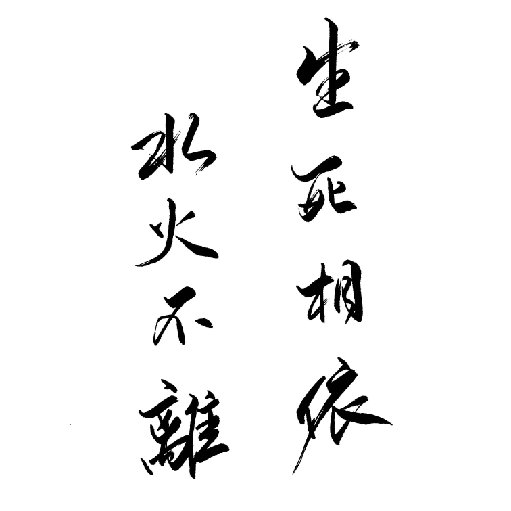 生死相依
水火不離